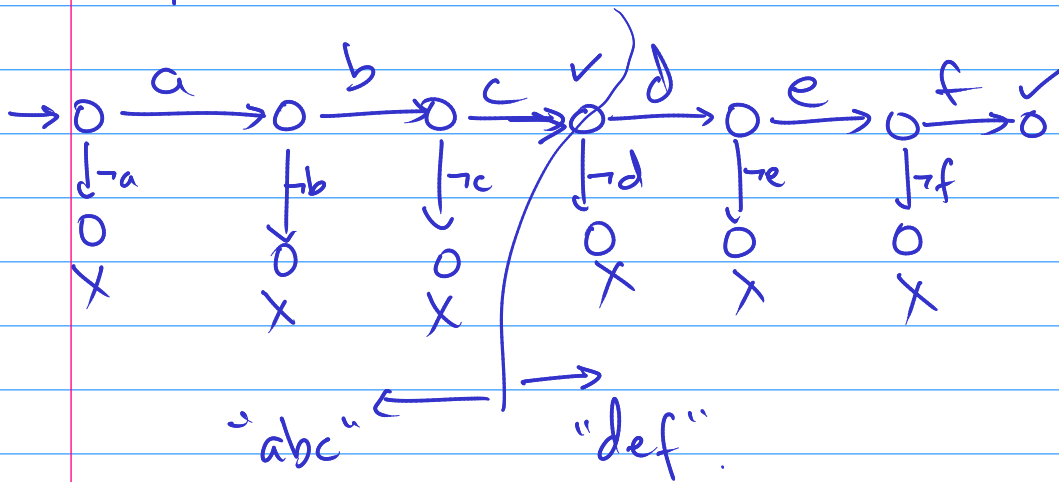 a b c ✓ d e f ✓
¬a ¬b ¬c ¬d ¬e ¬f
X X X X X X
"abc" "def".